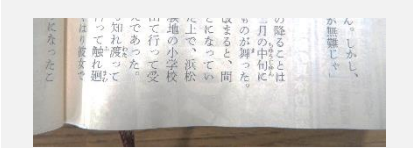 ん。しかし、
が無難じゃ」
の降ることは
月の中旬に
ものが舞った。
まると、間
とになってい
た上で、浜松
地の小学校
て行って受
であった。
知れ渡って
って触れ廻
はり彼女で
になったこ